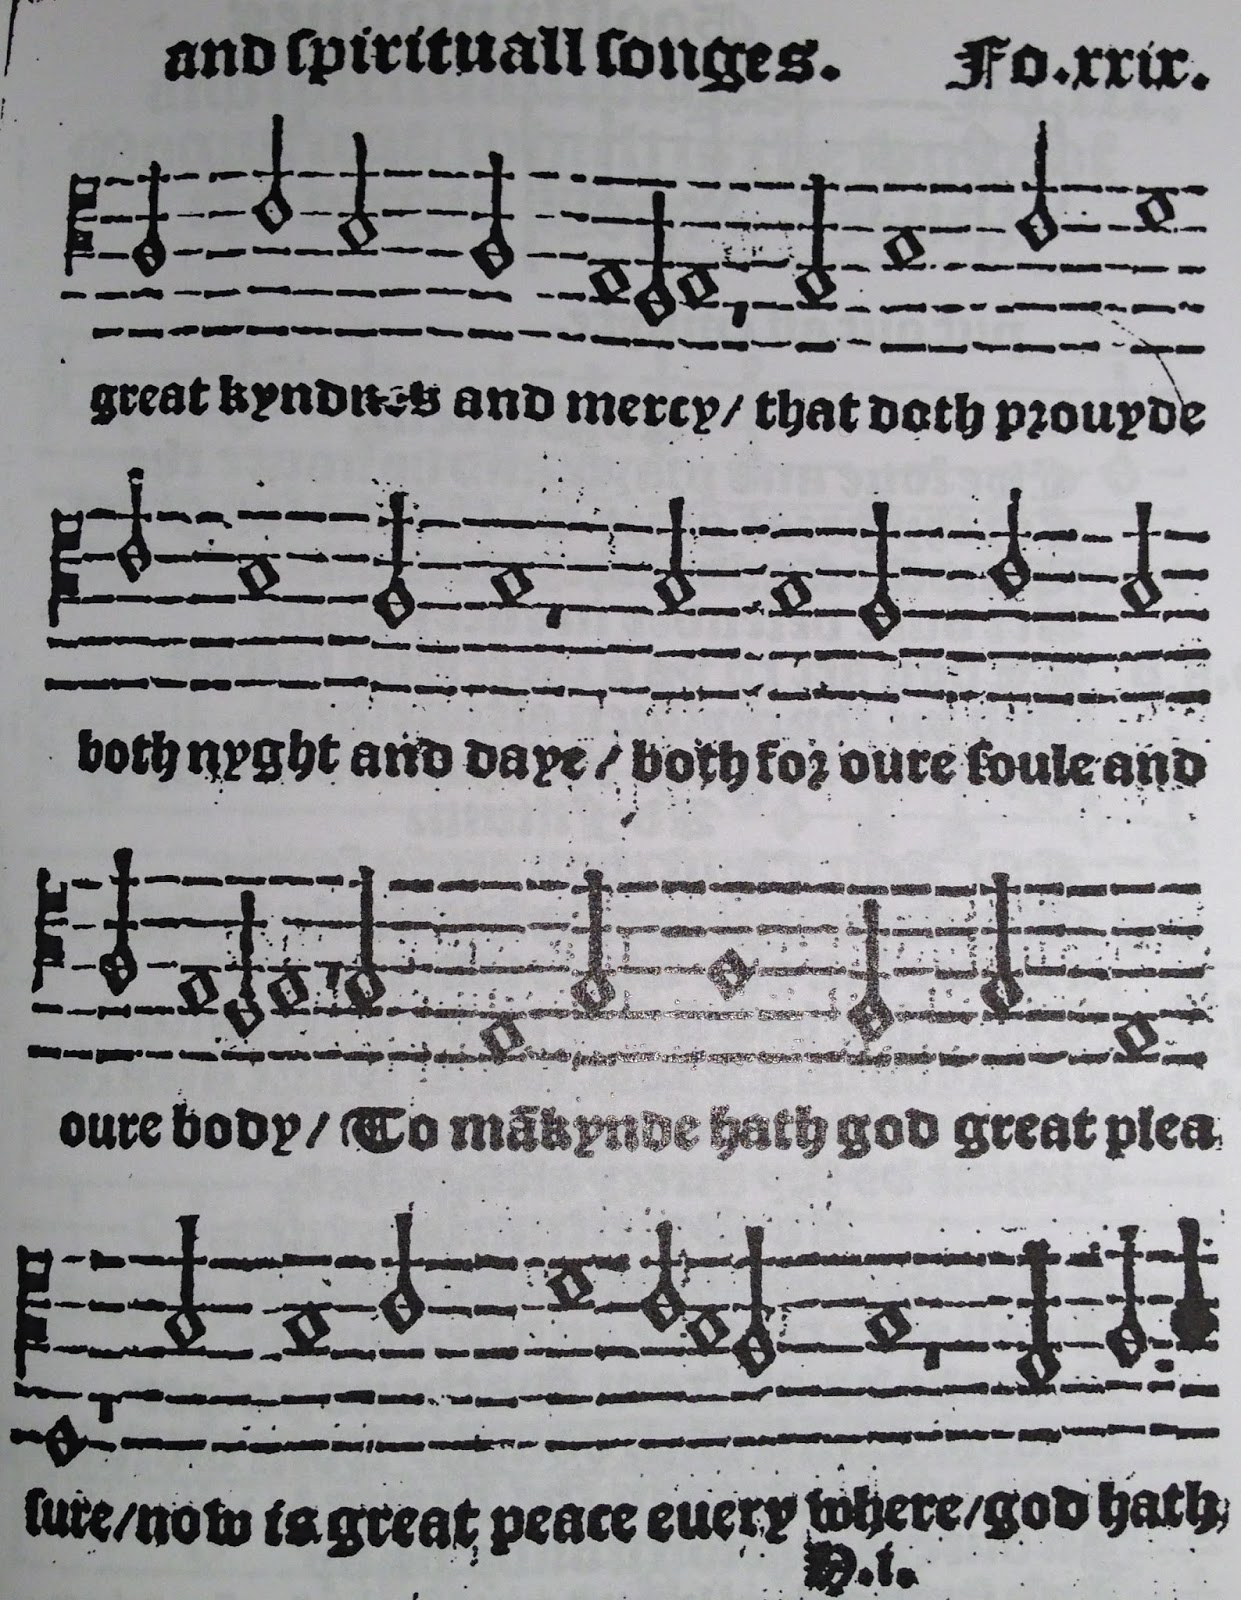 and spirituall songes. Fo.xxix.
great kyndnes and mercy/ that doth prouyde
both nyght and daye/ both for oure soule and
oure body/ To mākynde hath god great plea
sure/now is great peace euery where/god hath
H.i.